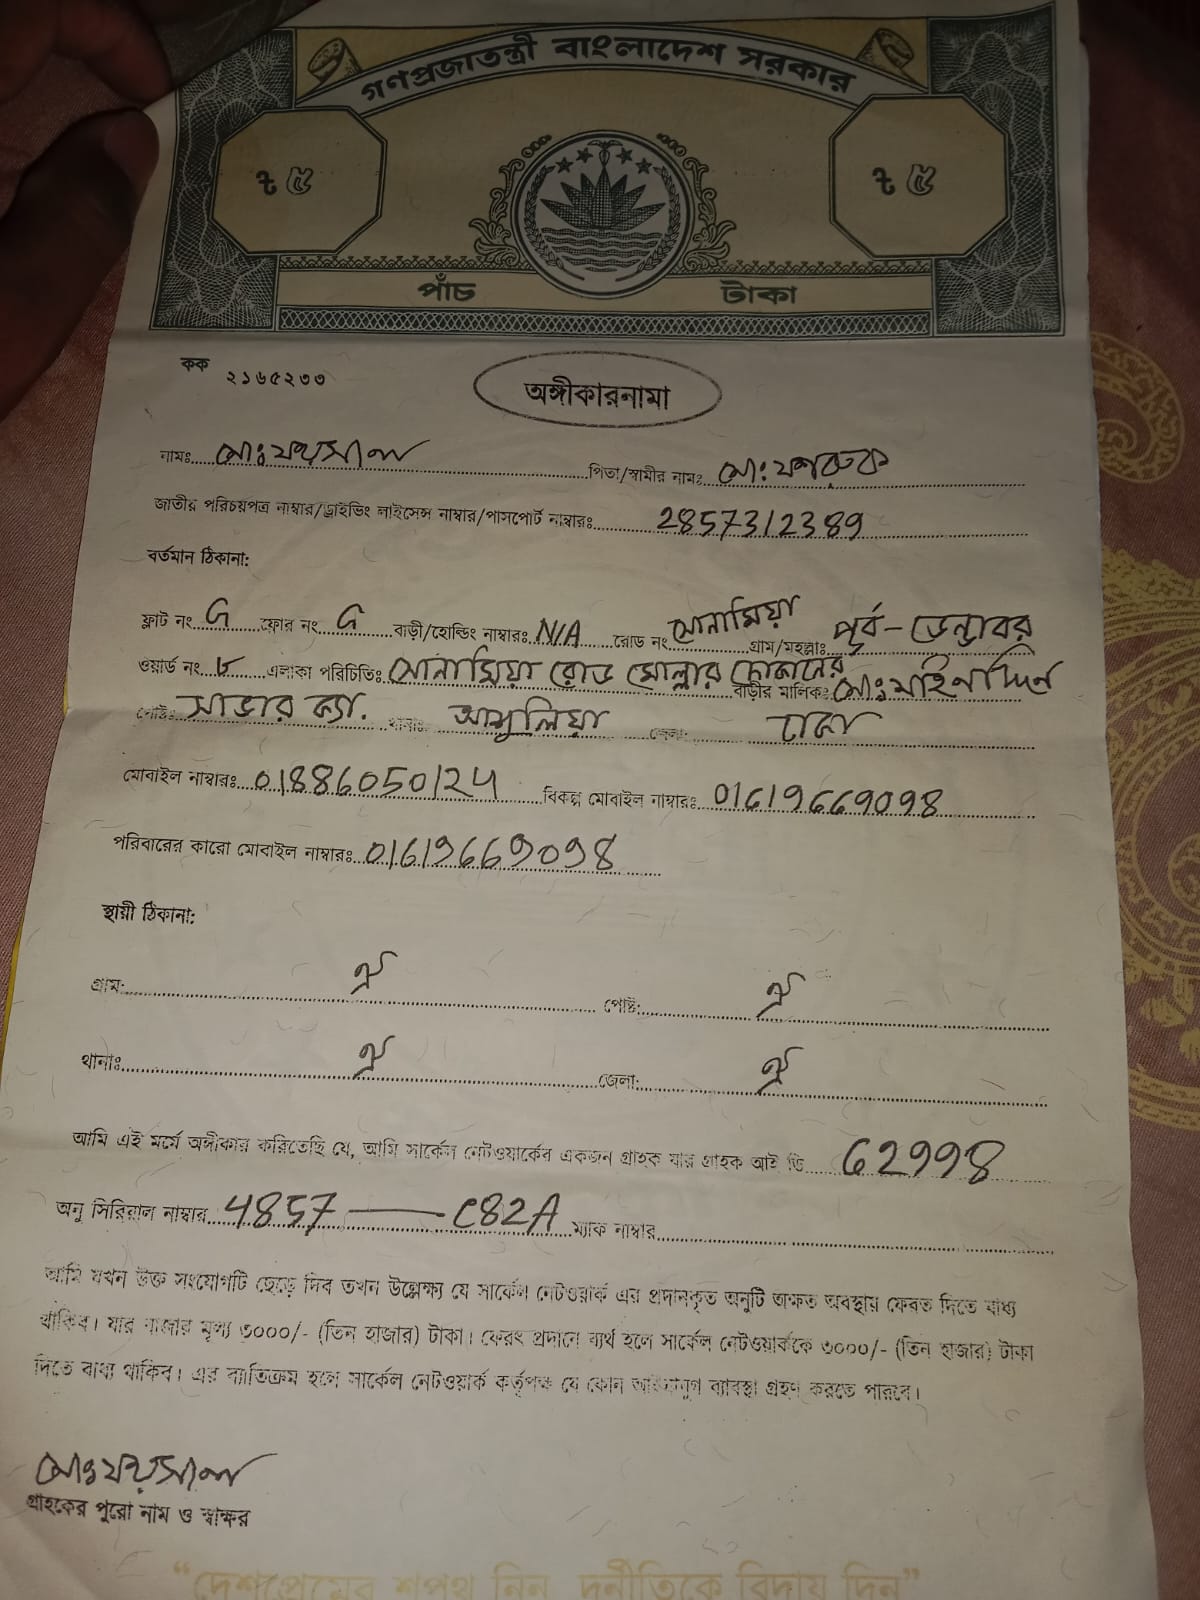 গণপ্রজাতন্ত্রী বাংলাদেশ সরকার
৳ ৫ ৳ ৫
পাঁচ টাকা
কক ২১৬৫২৩৩
অঙ্গীকারনামা
নামঃ মোঃ ফয়সাল পিতা/স্বামীর নামঃ মোঃ ফারুক
জাতীয় পরিচয়পত্র নাম্বার/ড্রাইভিং লাইসেন্স নাম্বার/পাসপোর্ট নাম্বারঃ 2857312389
বর্তমান ঠিকানা:
ফ্লাট নং G ফ্লোর নং G বাড়ী/হোল্ডিং নাম্বারঃ N/A রোড নং সোনামিয়া গ্রাম/মহল্লাঃ পূর্ব-ডেন্ডাবর
ওয়ার্ড নং ৮ এলাকা পরিচিতিঃ সোনামিয়া রোড মোল্লার দোকানের বাড়ীর মালিকঃ মোঃ মাইনদ্দিন
পোষ্টঃ সাভার ক্যা. থানাঃ আশুলিয়া জেলা: ঢাকা
মোবাইল নাম্বারঃ 01886050124 বিকল্প মোবাইল নাম্বারঃ 01619669098
পরিবারের কারো মোবাইল নাম্বারঃ 01619669098
স্থায়ী ঠিকানা:
গ্রাম: ঐ পোষ্ট: ঐ
থানাঃ ঐ জেলা: ঐ
আমি এই মর্মে অঙ্গীকার করিতেছি যে, আমি সার্কেল নেটওয়ার্কের একজন গ্রাহক যার গ্রাহক আই ডি 62998
অনু সিরিয়াল নাম্বার 4857 — C82A ম্যাক নাম্বার
আমি যখন উক্ত সংযোগটি ছেড়ে দিব তখন উল্লেক্ষ্য যে সার্কেল নেটওয়ার্ক এর প্রদানকৃত অনুটি অক্ষত অবস্থায় ফেরত দিতে বাধ্য
থাকিব। যার বাজার মূল্য ৩০০০/- (তিন হাজার) টাকা। ফেরৎ প্রদানে ব্যর্থ হলে সার্কেল নেটওয়ার্ককে ৩০০০/- (তিন হাজার) টাকা
দিতে বাধ্য থাকিব। এর ব্যতিক্রম হলে সার্কেল নেটওয়ার্ক কর্তৃপক্ষ যে কোন আইনানুগ ব্যাবস্থা গ্রহণ করতে পারবে।
মোঃ ফয়সাল
গ্রাহকের পুরো নাম ও স্বাক্ষর
“দেশপ্রেমের শপথ নিন, দুর্নীতিকে বিদায় দিন”